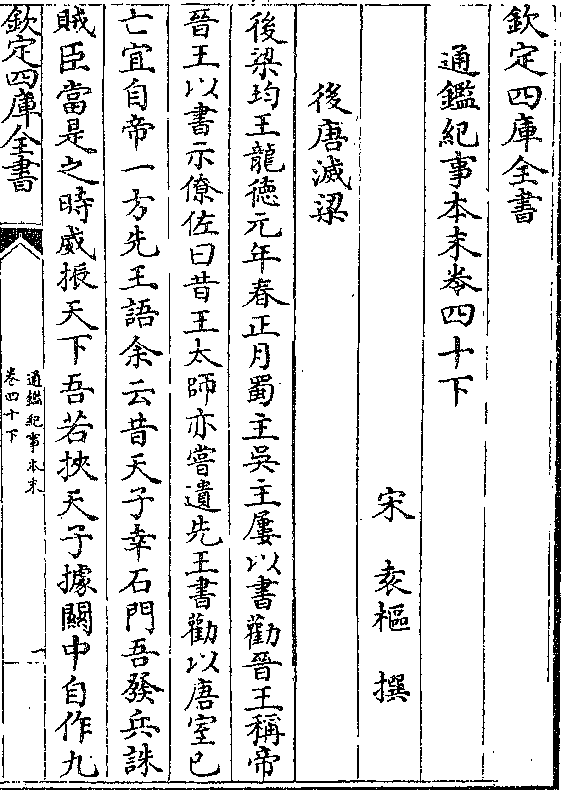 欽定四庫全書
通鑑紀事本末卷四十下
宋 袁樞 撰
後唐滅梁
後梁均王龍徳元年春正月蜀主吳主屢以書勸晉王稱帝
晉王以書示僚佐曰昔王太師亦嘗遺先王書勸以唐室已
亡宜自帝一方先王語余云昔天子幸石門吾發兵誅
賊臣當是之時威振天下吾若挾天子據關中自作九
欽定四庫全書
通鑑紀事本末
卷四十下
一